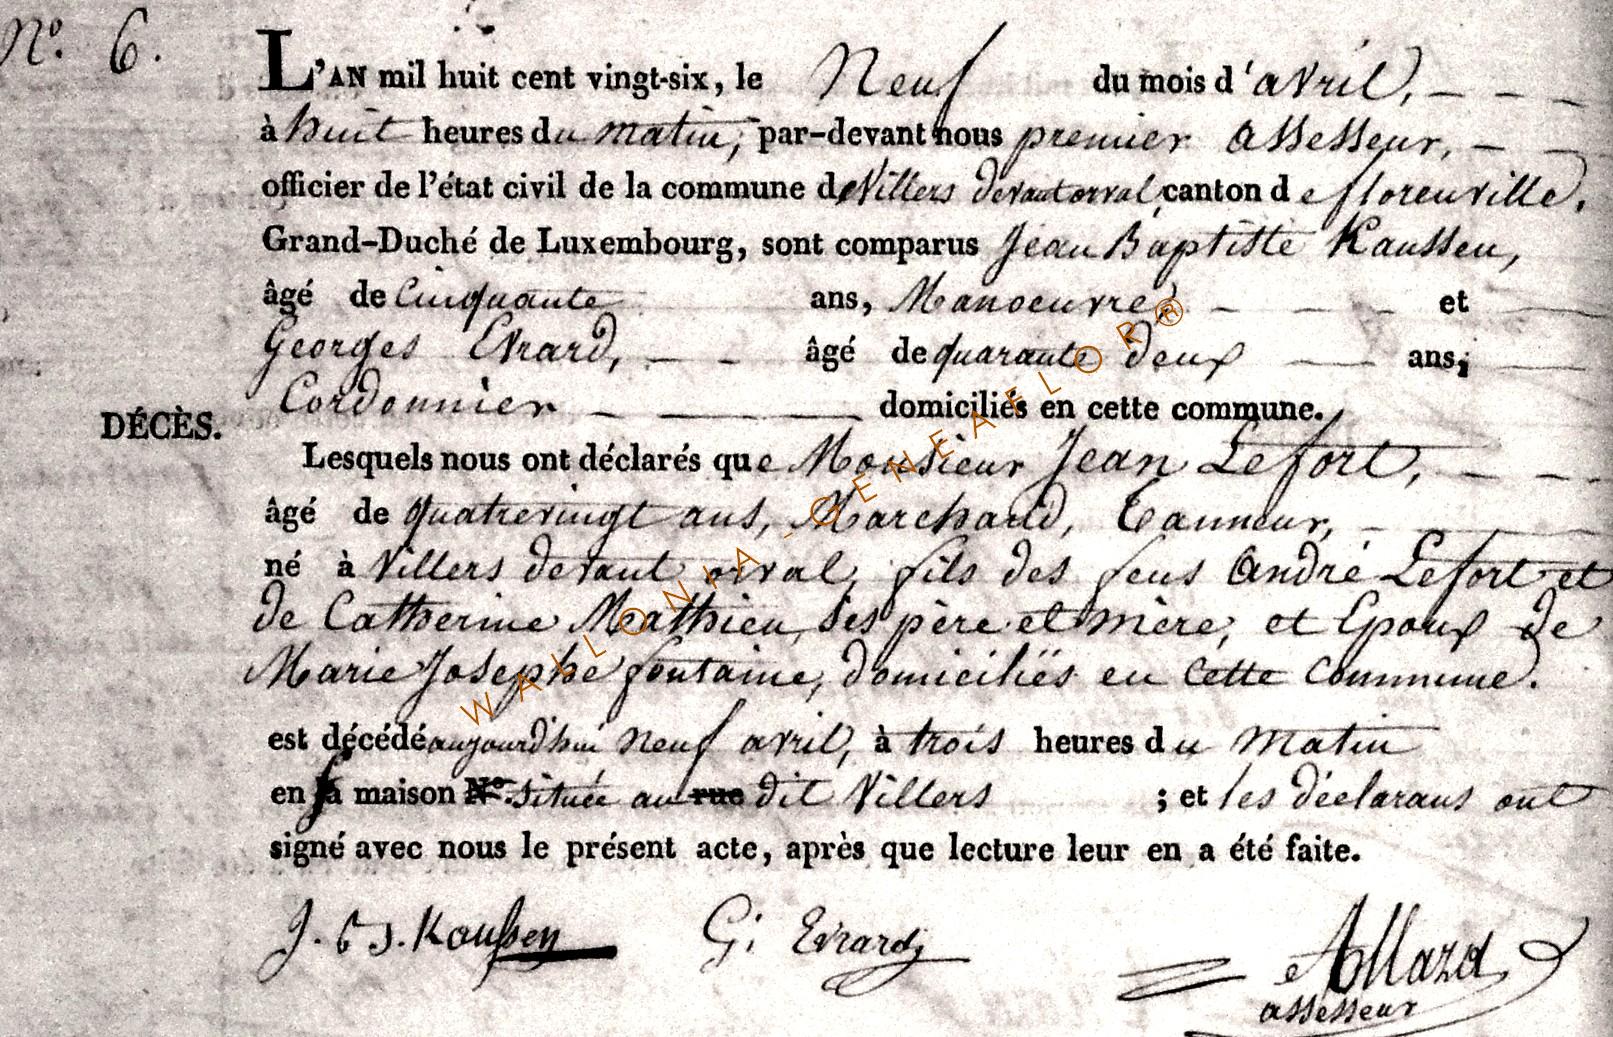 N.o 6.
L'AN mil huit cent vingt-six, le Neuf du mois d'avril,
à huit heures du matin, par-devant nous premier assesseur,
officier de l'état civil de la commune de Villers devant orval, canton de florenville.
Grand-Duché de Luxembourg, sont comparus Jean Baptiste Kaussen,
âgé de Cinquante ans, Manoeuvre, et
Georges Evrard, âgé de quarante deux ans,
Cordonnier domiciliés en cette commune.
DÉCÈS.
Lesquels nous ont déclarés que Monsieur Jean Lefort,
âgé de quatrevingt ans, Marchand, Tanneur,
né à Villers devant orval, fils des feus André Lefort et
de Catherine Mathieu, ses père et mère, et Epoux de
Marie Josephe fontaine, domiciliés en cette Commune.
est décédé aujourdhui neuf avril, à trois heures du Matin
en sa maison N.o située au rue dit Villers ; et les déclarans ont
signé avec nous le présent acte, après que lecture leur en a été faite.
J. bt. Koussen G. Evrard Allard
assesseur
WALLONIA-GENEAFLOR®